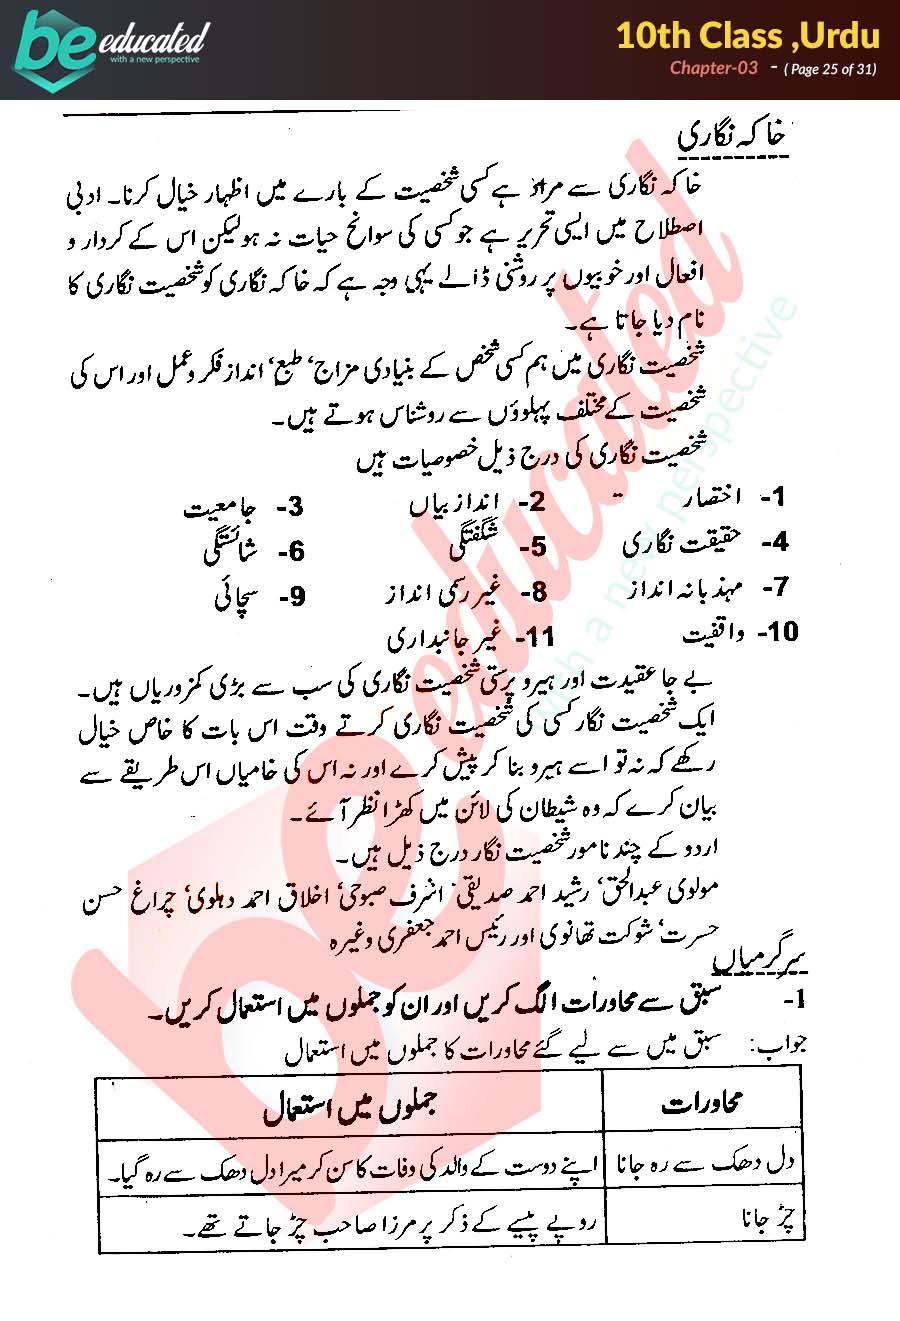 be educated
with a new perspective
10th Class ,Urdu
Chapter-03 - ( Page 25 of 31)
خاکہ نگاری
خاکہ نگاری سے مراد ہے کسی شخصیت کے بارے میں اظہار خیال کرنا۔ ادبی
اصطلاح میں ایسی تحریر ہے جو کسی کی سوانح حیات نہ ہو لیکن اس کے کردار و
افعال اور خوبیوں پر روشنی ڈالے یہی وجہ ہے کہ خاکہ نگاری کو شخصیت نگاری کا
نام دیا جاتا ہے۔
شخصیت نگاری میں ہم کسی شخص کے بنیادی مزاج، طبع، انداز فکر و عمل اور اس کی
شخصیت کے مختلف پہلوؤں سے روشناس ہوتے ہیں۔
شخصیت نگاری کی درج ذیل خصوصیات ہیں
1- اختصار 2- انداز بیاں 3- جامعیت
4- حقیقت نگاری 5- شگفتگی 6- شائستگی
7- مہذبانہ انداز 8- غیر رسمی انداز 9- سچائی
10- واقفیت 11- غیر جانبداری
بے جا عقیدت اور ہیرو پرستی شخصیت نگاری کی سب سے بڑی کمزوریاں ہیں۔
ایک شخصیت نگار کسی کی شخصیت نگاری کرتے وقت اس بات کا خاص خیال
رکھے کہ نہ تو اسے ہیرو بنا کر پیش کرے اور نہ اس کی خامیاں اس طریقے سے
بیان کرے کہ وہ شیطان کی لائن میں کھڑا نظر آئے۔
اردو کے چند نامور شخصیت نگار درج ذیل ہیں۔
مولوی عبدالحق، رشید احمد صدیقی، اشرف صبوحی، اخلاق احمد دہلوی، چراغ حسن
حسرت، شوکت تھانوی اور رئیس احمد جعفری وغیرہ
سرگرمیاں
1- سبق سے محاورات الگ کریں اور ان کو جملوں میں استعمال کریں۔
جواب: سبق میں سے لیے گئے محاورات کا جملوں میں استعمال
محاورات جملوں میں استعمال
دل دھک سے رہ جانا اپنے دوست کے والد کی وفات کا سن کر میرا دل دھک سے رہ گیا۔
چڑ جانا روپے پیسے کے ذکر پر مرزا صاحب چڑ جاتے تھے۔
be educated
with a new perspective